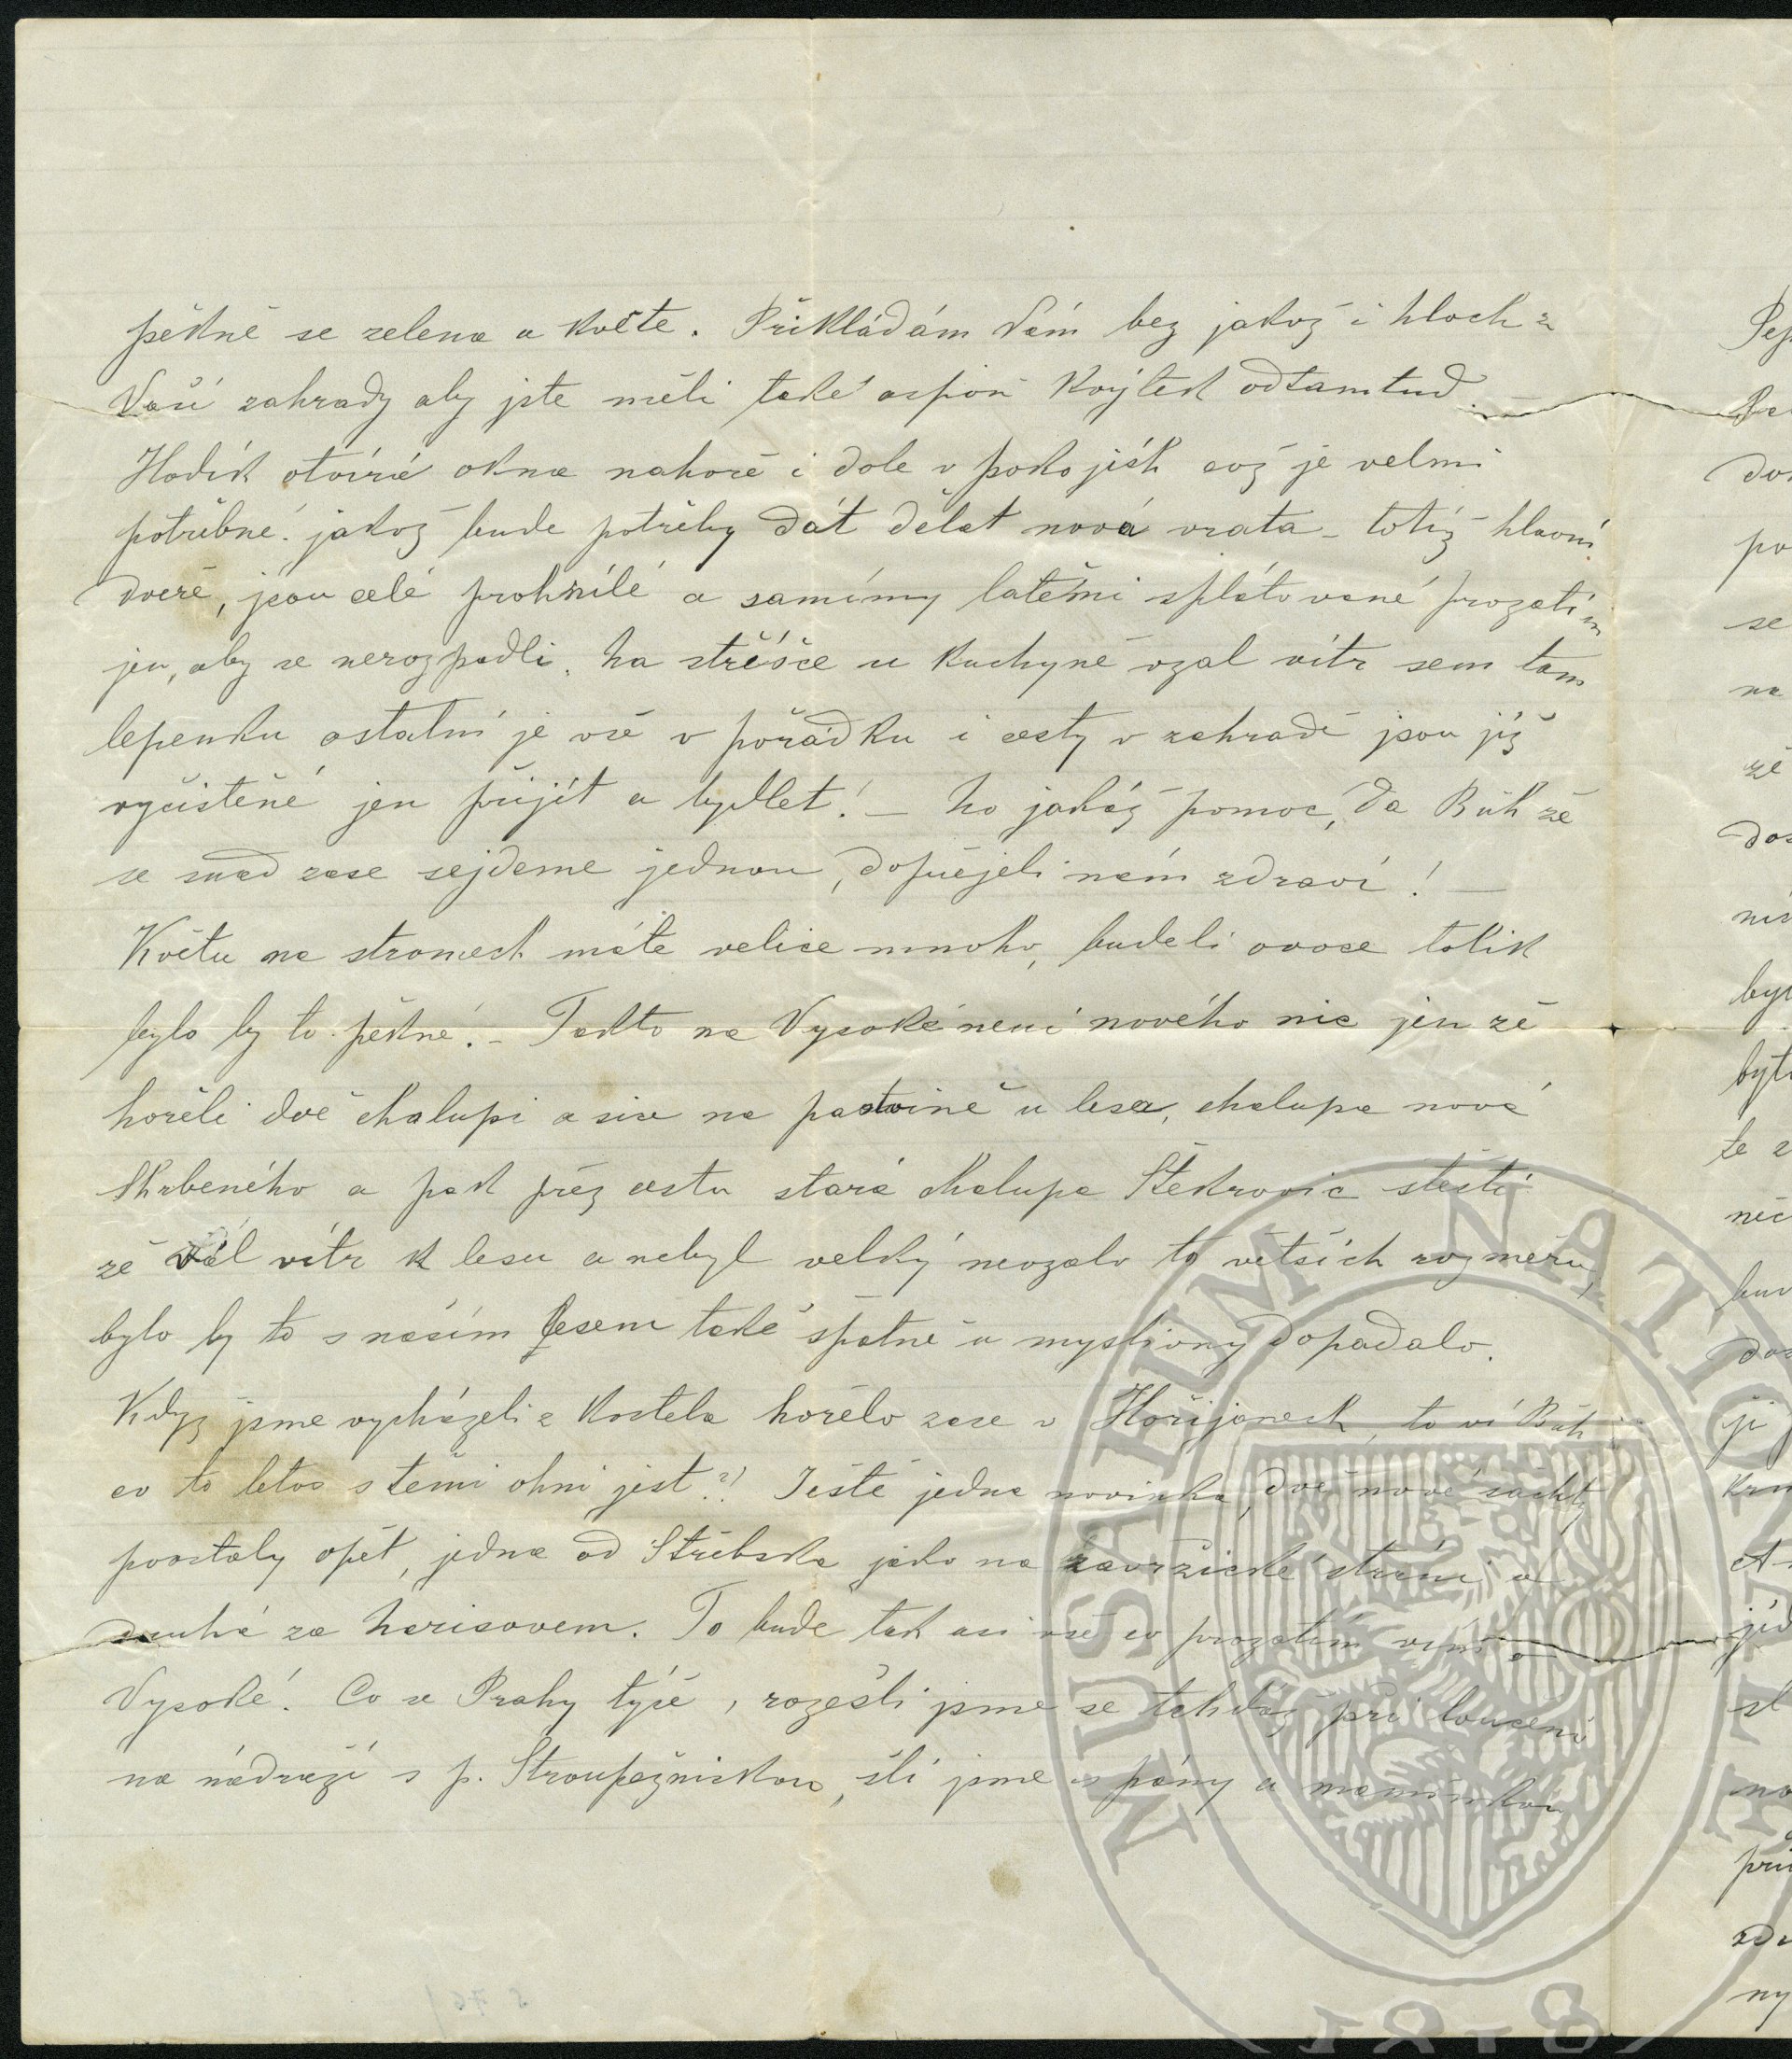 pěkně se zelena a květe. Přikládám Vám bez jakož i hloch z
Vaší zahrady aby jste měli také aspoň kvýtek odtamtud. —
Hodík otvírá okna nahoře i dole v pokojích což je velmi
potřebné. jakož bude potřeby dát dělat nová vrata – totiž hlavní
dveře, jsou celé prohnilé a samímy latěmi splátované prozatím
jen, aby se nerozpadli. Na stříšce u kuchyně vzal vítr sem tam
lepenku ostatní je vše v pořádku i cesty v zahradě jsou již
vyčistěné jen přijít a bydlet! – No jakáž pomoc, da Bůh že
se snad zase sejdeme jednou, dopřejeli nám zdraví! —
Květu na stromech máte velice mnoho, budeli ovoce tolik
bylo by to pěkné. – Takto na Vysoké není nového nic jen že
hořeli dvě chalupi a sice na pastvině u lesa, chalupa nová
Skrbeného a pak přez cestu stará chalupa Štekrovic stěstí
že vál vítr k lesu a nebyl velký nevzalo to větších rozměru,
bylo by to s naším lesem také špatně u myslivny dopadalo.
Když jsme vycházeli z kostela hořelo zase v Hořijanech, to ví Bůh
co to letos s těmi ohni jest?! Jěště jedna novinka, dvě nové šachty
povstaly opět, jedna od Střebska jako na zavržické stráni a
druhá za harisovem. To bude tak asi vše co prozatím vím o
Vysoké. Co se Prahy týče, rozešli jsme se tehdáž při loučení
na nádraží s p. Stroupežnickou, šli jsme s pány a maminkou
Pep
dos
po
se
na
že
dos
by
byt
te z
něc
bud
ji
A
jed
sl
při
ny
MUSAEUM NATIONALE
1818